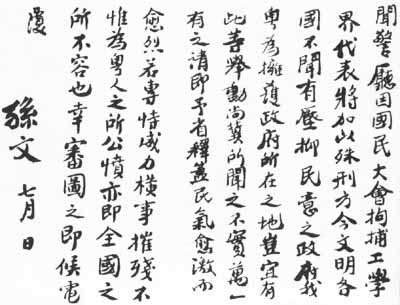 聞警厅因國民大會拘捕工學
界代表將加以殊刑方今文明各
國不聞有壓抑民意之政府我
粤為擁護政府所在之地豈宜有
此等舉動尚冀所聞之不實萬一
有之請即予省釋蓋民氣愈激而
愈烈若專恃威力橫事摧殘不
惟為粤人之所公憤亦即全國之
所不容也幸審圖之即候電
復
孫文 七月 日